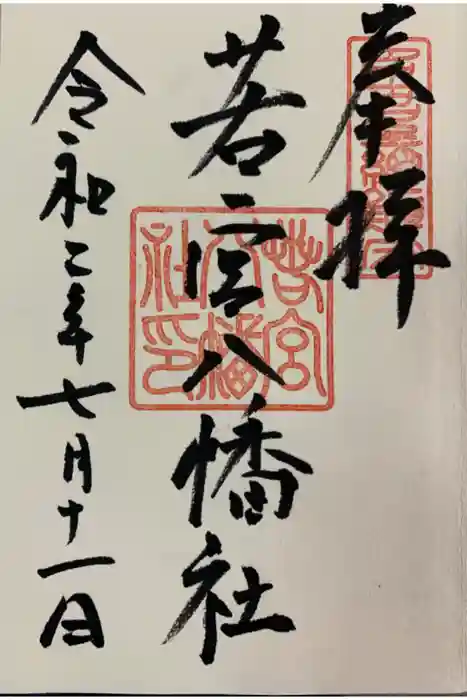 奉拝
若宮八幡社
令和二年七月十一日
若宮
八幡
社印